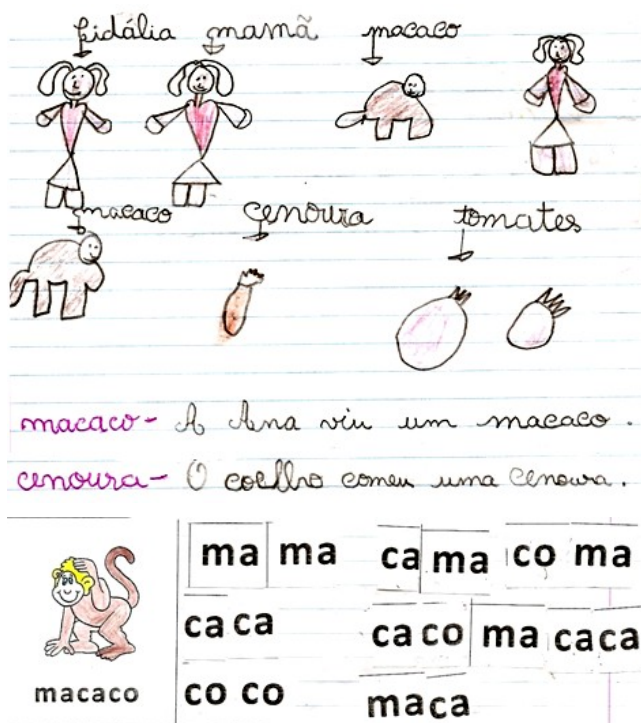 fidália mamã macaco
macaco cenoura tomates
macaco - A Ana viu um macaco.
cenoura - O coelho comeu uma cenoura.
ma ma ca ma co ma
ca ca ca co ma ca ca
macaco co co ma ca